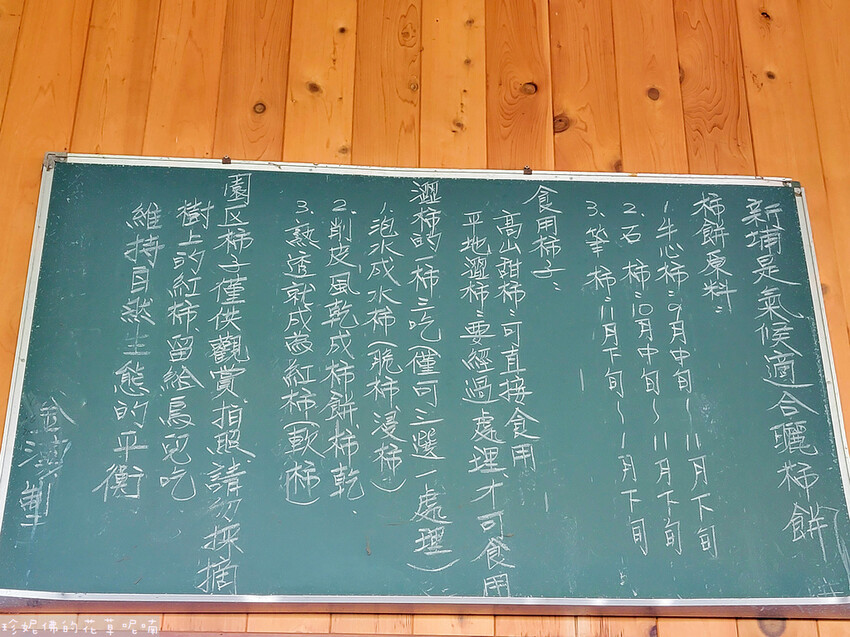 新埔是氣候適合曬柿餅
柿餅原料：
1.牛心柿：9月中旬～11月下旬
2.石柿：10月中旬～11月下旬
3.筆柿：11月下旬～1月下旬
食用柿子：
高山甜柿：可直接食用
平地澀柿：要經過處理才可食用
澀柿的一柿三吃(僅可三選一處理)
1.泡水成水柿(脆柿浸柿)
2.削皮風乾成柿餅.柿乾.
3.熟透就成為紅柿(軟柿)
園区柿子僅供觀賞.拍照.請勿採摘
樹上的紅柿.留給鳥兒吃
維持自然生態的平衡
金漢
珍妮佛的花草呢喃